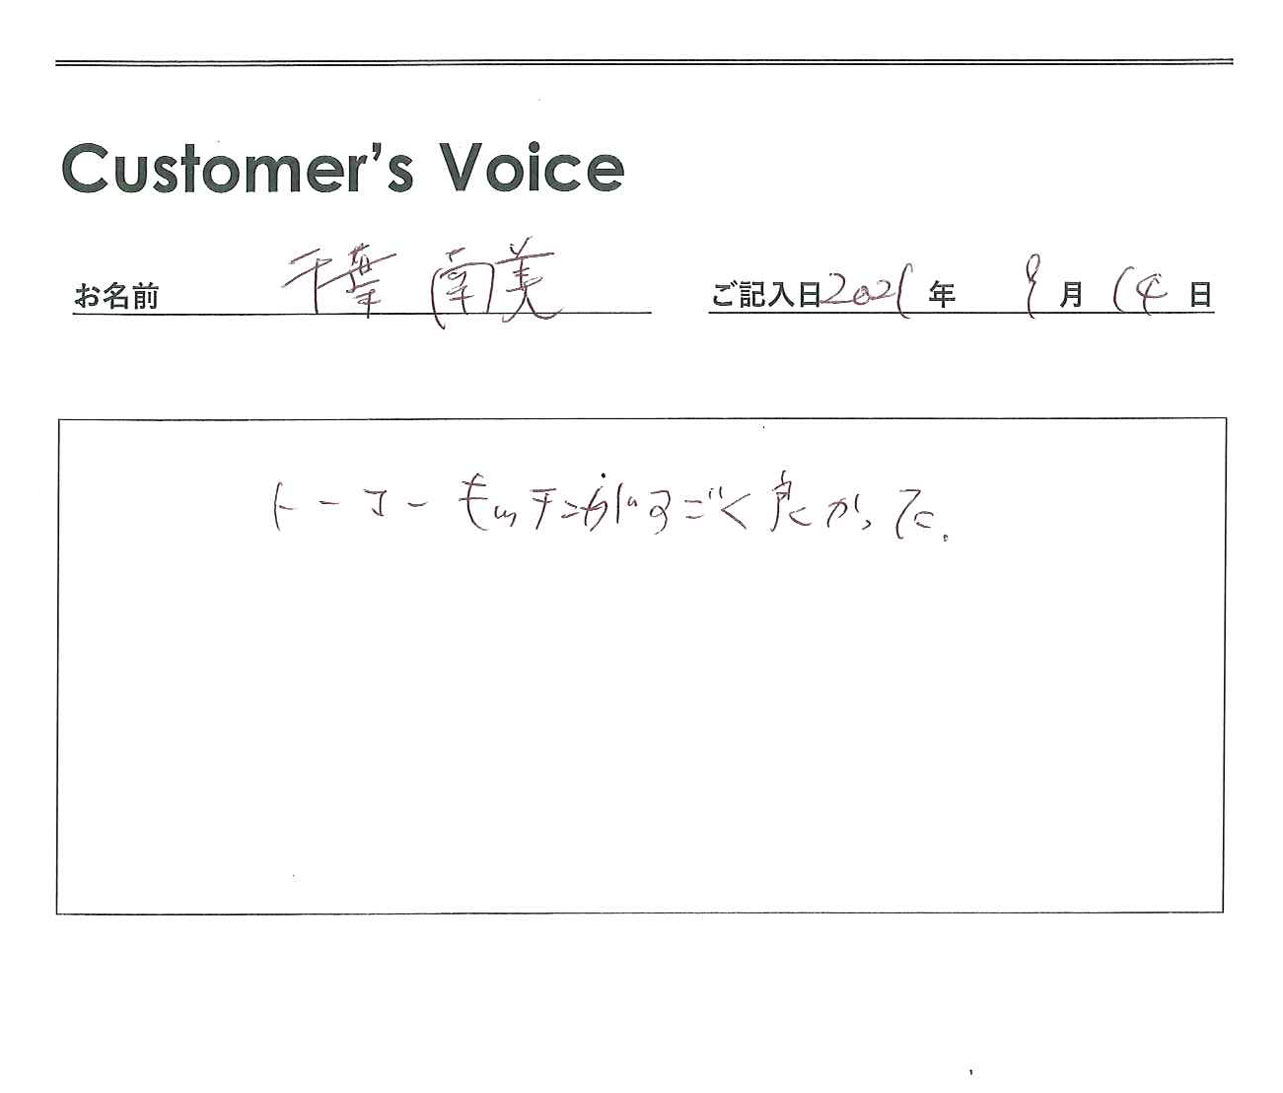 Customer's Voice
お名前 千葉 南美 ご記入日 2021年 9月 14日
すごく良かった。